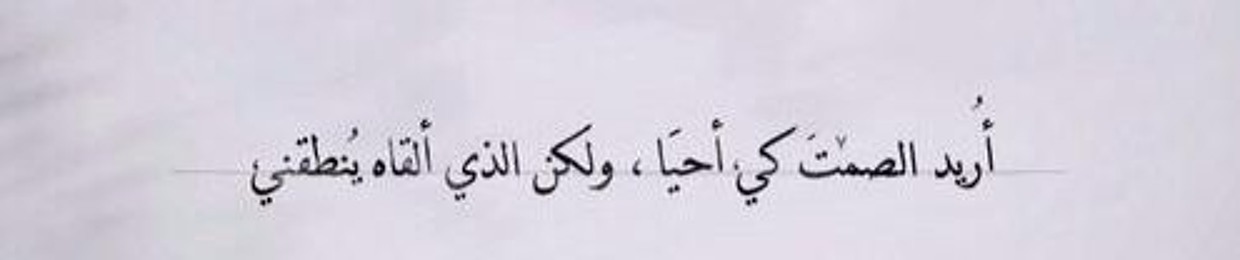 أُريد الصمْتَ كي أحيَا ، ولكن الذي ألقاه يُنطقني